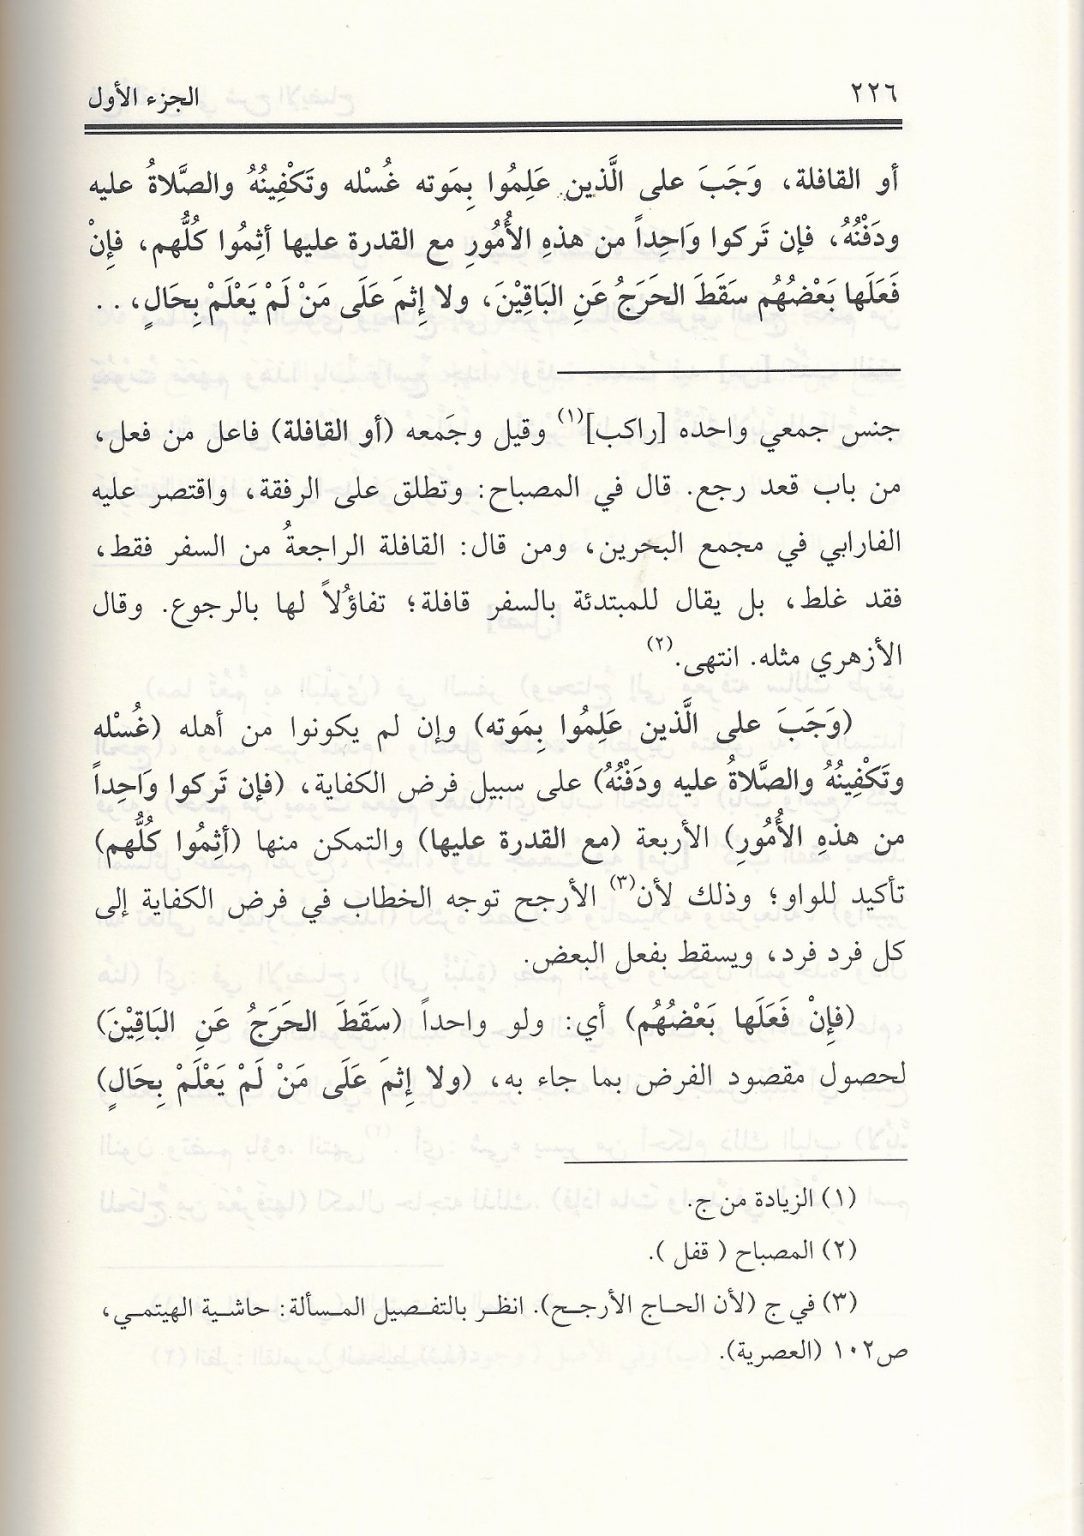 ٢٢٦ الجزء الأول
أو القافلة، وَجَبَ على الَّذين عَلِمُوا بِمَوته غُسْله وتَكْفِينُهُ والصَّلاةُ عليه
ودَفْنُهُ، فإن تَركوا وَاحِداً من هذهِ الأُمُورِ مع القدرة عليها أثِمُوا كُلُّهم، فإِنْ
فَعَلَها بَعْضُهُم سَقَطَ الحَرَجُ عَنِ البَاقِيْنَ، ولا إِثمَ عَلَى مَنْ لَمْ يَعْلَمْ بِحَالٍ، . .
جنس جمعي واحده [راكب](١) وقيل وجَمعه (أو القافلة) فاعل من فعل،
من باب قعد رجع. قال في المصباح: وتطلق على الرفقة، واقتصر عليه
الفارابي في مجمع البحرين، ومن قال: القافلة الراجعةُ من السفر فقط،
فقد غلط، بل يقال للمبتدئة بالسفر قافلة؛ تفاؤُلاً لها بالرجوع. وقال
الأزهري مثله. انتهى.(٢)
(وَجَبَ على الَّذين عَلِمُوا بِمَوته) وإن لم يكونوا من أهله (غُسْله
وتَكْفِينُهُ والصَّلاةُ عليه ودَفْنُهُ) على سبيل فرض الكفاية، (فإن تَركوا وَاحِداً
من هذهِ الأُمُورِ) الأربعة (مع القدرة عليها) والتمكن منها (أثِمُوا كُلُّهم)
تأكيد للواو؛ وذلك لأن(٣) الأرجح توجه الخطاب في فرض الكفاية إلى
كل فرد فرد، ويسقط بفعل البعض.
(فإِنْ فَعَلَها بَعْضُهُم) أي: ولو واحداً (سَقَطَ الحَرَجُ عَنِ البَاقِيْنَ)
لحصول مقصود الفرض بما جاء به، (ولا إِثمَ عَلَى مَنْ لَمْ يَعْلَمْ بِحَالٍ)
(١) الزيادة من ج.
(٢) المصباح ( قفل ).
(٣) في ج (لأن الحاج الأرجح). انظر بالتفصيل المسألة: حاشية الهيتمي،
ص١٠٢ (العصرية).